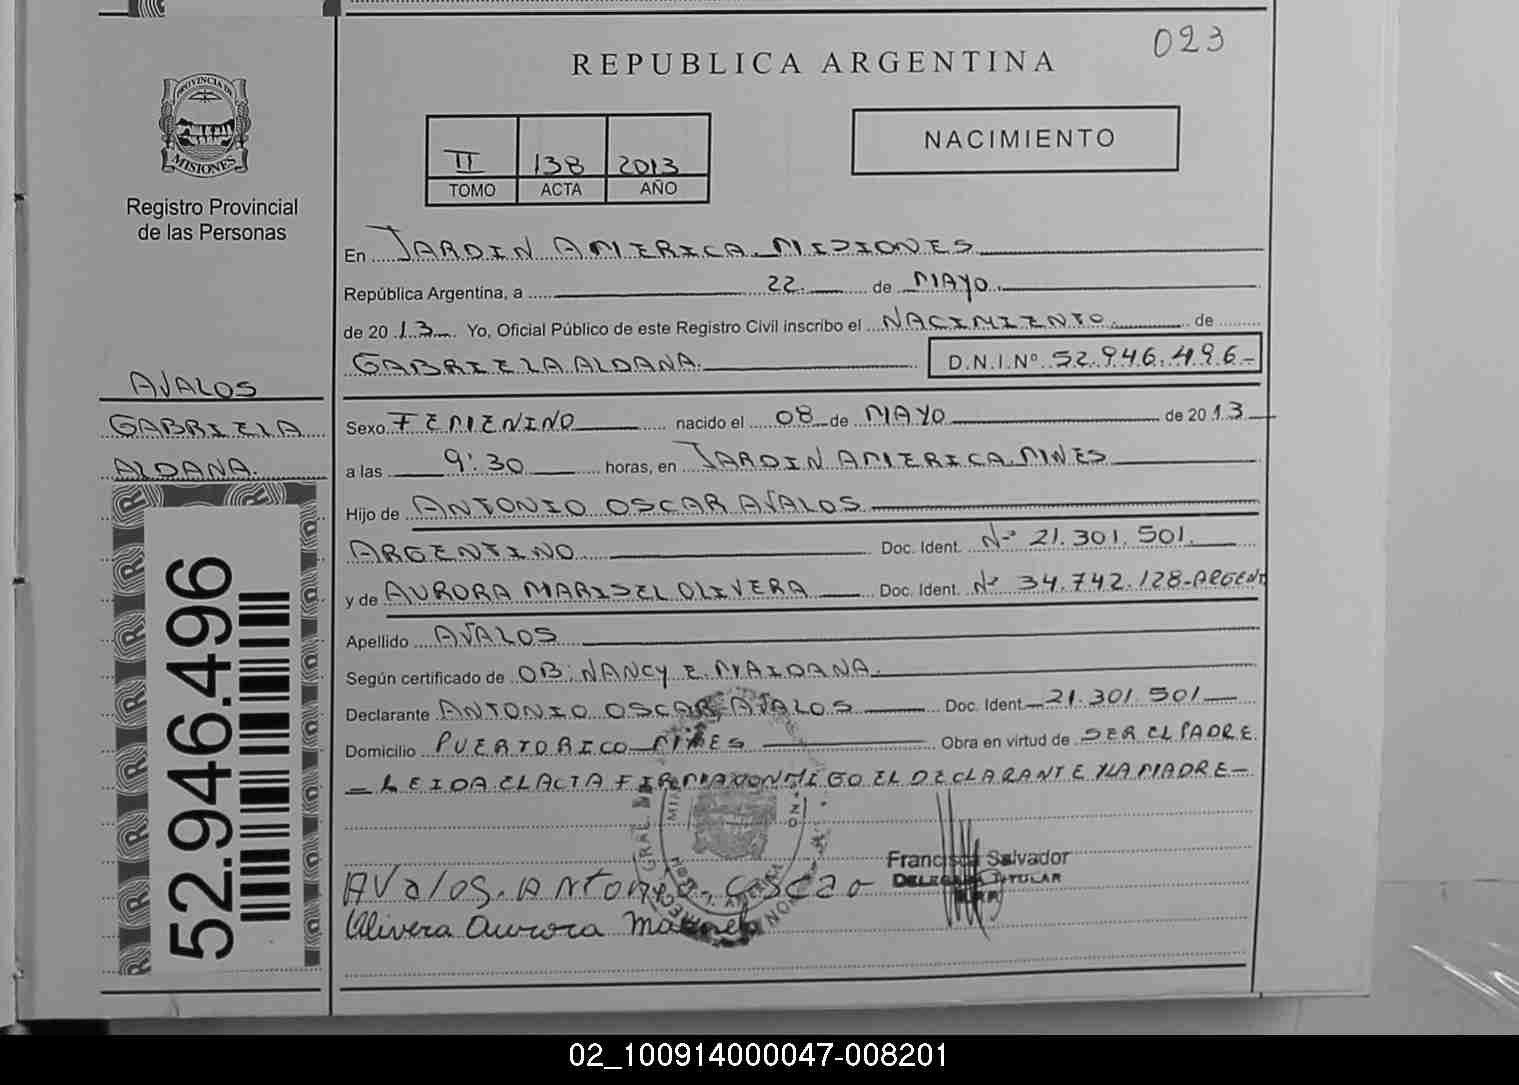 023
REPUBLICA ARGENTINA
PROVINCIA DE
MISIONES
Registro Provincial
de las Personas
NACIMIENTO
II 138 2013
TOMO ACTA AÑO
En JARDIN AMERICA. MISIONES
República Argentina, a 22 de MAYO
de 2013 Yo, Oficial Público de este Registro Civil inscribo el NACIMIENTO de
GABRIELA ALDANA D.N.I.Nº 52.946.496-
AVALOS
GABRIELA
ALDANA.
Sexo FEMENINO nacido el 08 de MAYO de 2013
a las 9:30 horas, en JARDIN AMERICA MNES
Hijo de ANTONIO OSCAR AVALOS
ARGENTINO Doc. Ident. Nº 21.301.501.
y de AURORA MARISEL OLIVERA Doc. Ident. Nº 34.742.128-ARGENT
Apellido AVALOS
Según certificado de OB: NANCY E. MAIDANA.
Declarante ANTONIO OSCAR AVALOS Doc. Ident. 21.301.501
Domicilio PUERTO RICO MNES Obra en virtud de SER EL PADRE.
- LEIDA EL ACTA FIRMA CONMIGO EL DECLARANTE Y LA MADRE -
52.946.496
Francisca Salvador
DELEGADA TITULAR
AValos. ANtonio - Oscar
Olivera Aurora Marisel
02_100914000047-008201